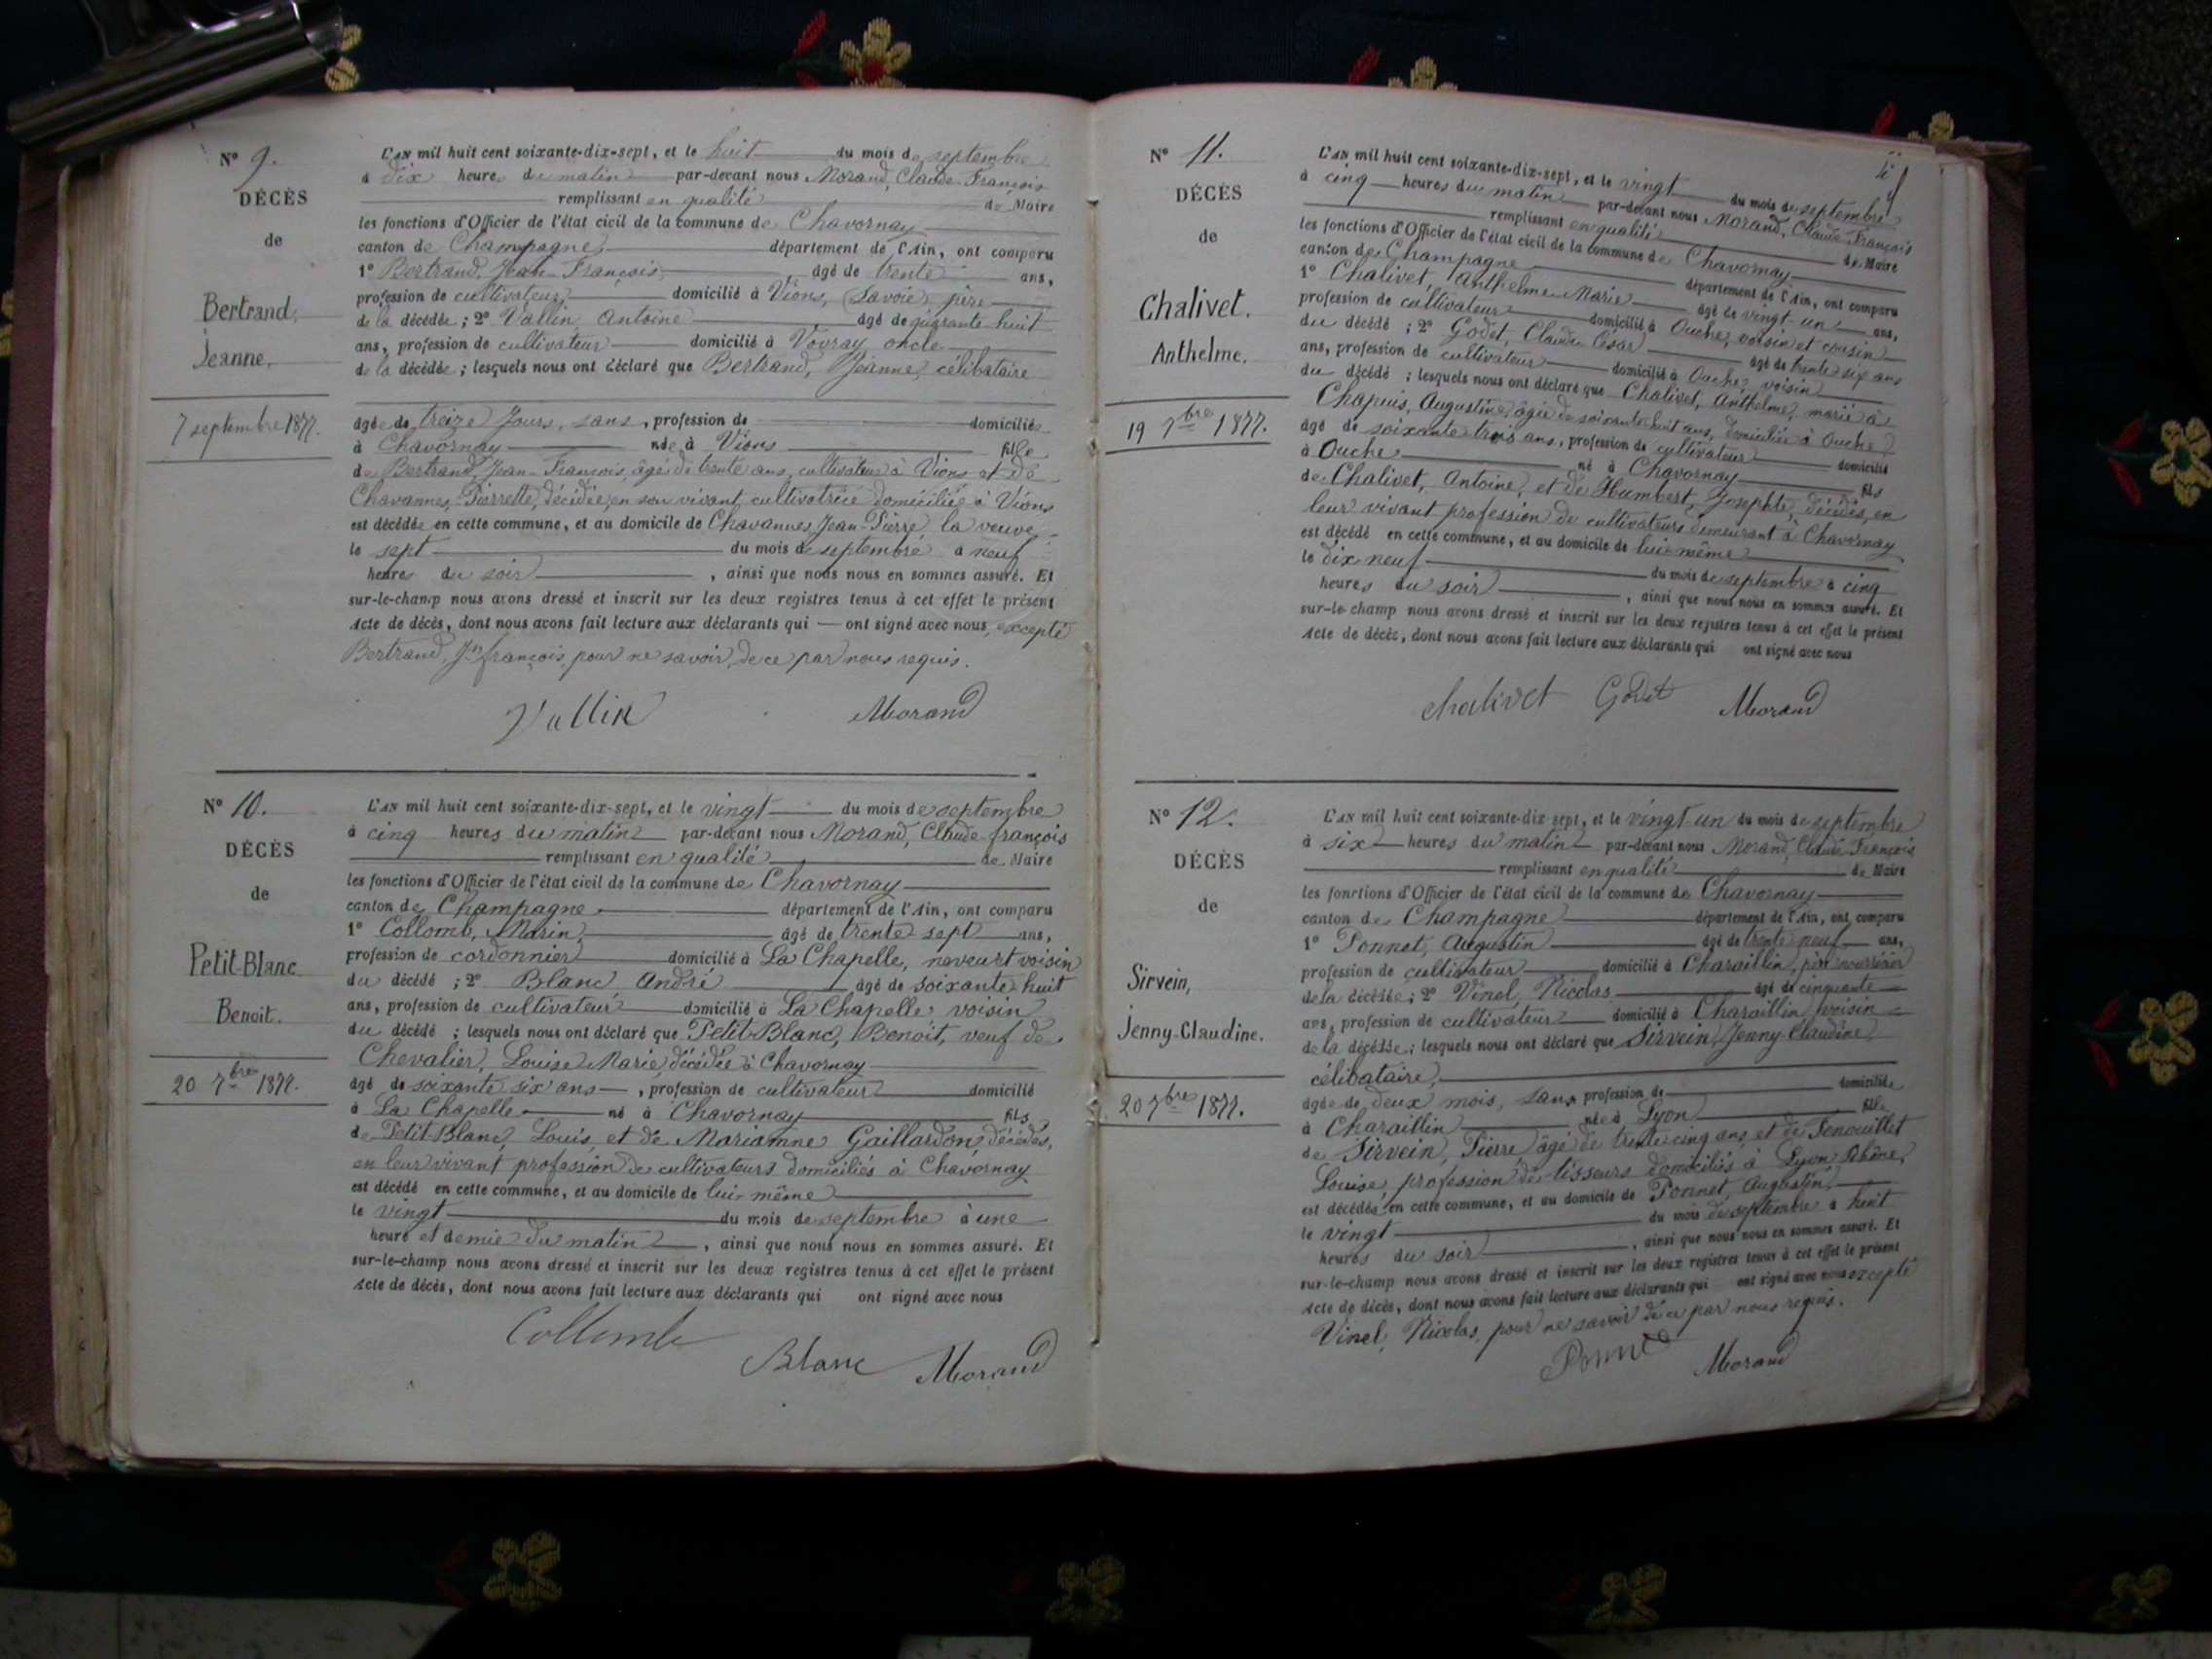 N° 9.
DÉCÈS
de
Bertrand,
Jeanne.
7 septembre 1877.
L'AN mil huit cent soixante-dix-sept, et le huit du mois de septembre
à dix heures du matin par-devant nous Morand, Claude François
remplissant en qualité de Maire
les fonctions d'Officier de l'état civil de la commune de Chavornay
canton de Champagne département de l'Ain, ont comparu
1° Bertrand, Jean-François, âgé de trente ans,
profession de cultivateur domicilié à Vions, (Savoie) père
de la décédée ; 2° Vallin Antoine âgé de quarante huit
ans, profession de cultivateur domicilié à Vovray oncle
de la décédée ; lesquels nous ont déclaré que Bertrand, Jeanne, célibataire
âgée de treize jours, sans, profession de domiciliée
à Chavornay née à Vions fille
de Bertrand Jean-François, âgé de trente ans, cultivateur à Vions et de
Chavannes, Pierrette, décédée, en son vivant cultivatrice domiciliée à Vions
est décédée en cette commune, et au domicile de Chavannes, Jean-Pierre, la veuve,
le sept du mois de septembre à neuf
heures du soir, ainsi que nous nous en sommes assuré. Et
sur-le-champ nous avons dressé et inscrit sur les deux registres tenus à cet effet le présent
Acte de décès, dont nous avons fait lecture aux déclarants qui ont signé avec nous, excepté
Bertrand, Jn françois, pour ne savoir, de ce par nous requis.
Vallin Morand
N° 10.
DÉCÈS
de
Petit-Blanc
Benoit.
20 7bre 1877.
L'AN mil huit cent soixante-dix-sept, et le vingt du mois de septembre
à cinq heures du matin par-devant nous Morand, Claude-françois
remplissant en qualité de Maire
les fonctions d'Officier de l'état civil de la commune de Chavornay
canton de Champagne département de l'Ain, ont comparu
1° Collomb, Marin, âgé de trente sept ans,
profession de cordonnier domicilié à La Chapelle, neveu et voisin
du décédé ; 2° Blanc André âgé de soixante huit
ans, profession de cultivateur domicilié à La Chapelle voisin
du décédé ; lesquels nous ont déclaré que Petit-Blanc, Benoit, veuf de
Chevalier, Louise Marie, décédée à Chavornay
âgé de soixante six ans, profession de cultivateur domicilié
à La Chapelle né à Chavornay fils
de Petit Blanc, Louis, et de Marianne Gaillardon, décédés,
en leur vivant profession de cultivateurs domiciliés à Chavornay
est décédé en cette commune, et au domicile de lui-même
le vingt du mois de septembre à une
heure et demie du matin, ainsi que nous nous en sommes assuré. Et
sur-le-champ nous avons dressé et inscrit sur les deux registres tenus à cet effet le présent
Acte de décès, dont nous avons fait lecture aux déclarants qui ont signé avec nous
Collomb Blanc Morand
N° 11.
DÉCÈS
de
Chalivet.
Anthelme.
19 7bre 1877.
L'AN mil huit cent soixante-dix-sept, et le vingt du mois de septembre
à cinq heures du matin par-devant nous Morand, Claude-François
remplissant en qualité de Maire
les fonctions d'Officier de l'état civil de la commune de Chavornay
canton de Champagne département de l'Ain, ont comparu
1° Chalivet, Anthelme-Marie âgé de vingt-un ans,
profession de cultivateur domicilié à Ouche, voisin et cousin
du décédé ; 2° Godet, Claude César âgé de trente six ans
ans, profession de cultivateur domicilié à Ouche, voisin
du décédé ; lesquels nous ont déclaré que Chalivet, Anthelme, marié à
Chapuis, Augustine, âgée de soixante huit ans, domiciliée à Ouche
âgé de soixante trois ans, profession de cultivateur domicilié
à Ouche né à Chavornay fils
de Chalivet, Antoine, et de Humbert, Josephte, décédés, en
leur vivant profession de cultivateurs demeurant à Chavornay
est décédé en cette commune, et au domicile de lui-même
le dix neuf du mois de septembre à cinq
heures du soir, ainsi que nous nous en sommes assuré. Et
sur-le-champ nous avons dressé et inscrit sur les deux registres tenus à cet effet le présent
Acte de décès, dont nous avons fait lecture aux déclarants qui ont signé avec nous
Chalivet Godet Morand
N° 12.
DÉCÈS
de
Sirvein,
Jenny-Claudine.
20 7bre 1877.
L'AN mil huit cent soixante-dix-sept, et le vingt-un du mois de septembre
à six heures du matin par-devant nous Morand, Claude François
remplissant en qualité de Maire
les fonctions d'Officier de l'état civil de la commune de Chavornay
canton de Champagne département de l'Ain, ont comparu
1° Ponnet, Augustin âgé de trente neuf ans,
profession de cultivateur domicilié à Charaillin, père nourricier
de la décédée ; 2° Vinel, Nicolas âgé de cinquante
ans, profession de cultivateur domicilié à Charaillin voisin
de la décédée ; lesquels nous ont déclaré que Sirvein, Jenny-Claudine,
célibataire,
âgée de deux mois, sans profession de domiciliée
à Charaillin née à Lyon fille
de Sirvein, Pierre, âgé de trente cinq ans, et de Fenouillet
Louise, profession de tisseurs domiciliés à Lyon Rhône,
est décédée en cette commune, et au domicile de Ponnet, Augustin,
le vingt du mois de septembre à huit
heures du soir, ainsi que nous nous en sommes assuré. Et
sur-le-champ nous avons dressé et inscrit sur les deux registres tenus à cet effet le présent
Acte de décès, dont nous avons fait lecture aux déclarants qui ont signé avec nous excepté
Vinel, Nicolas, pour ne savoir de ce par nous requis.
Ponnet Morand